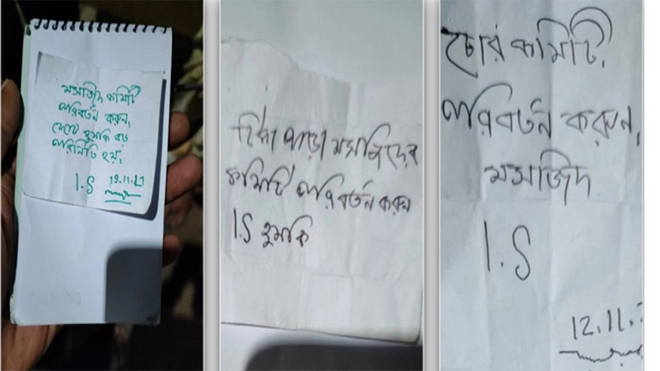 মসজিদ কমিটি
পরিবর্তন করুন,
হুমকি বড়
হয়,
I.S 12.11.21
পাড়া মসজিদের
কমিটি পরিবর্তন করুন
I.S হুমকি
চোর কমিটি,
পরিবর্তন করুন,
মসজিদ
I.S
12.11.